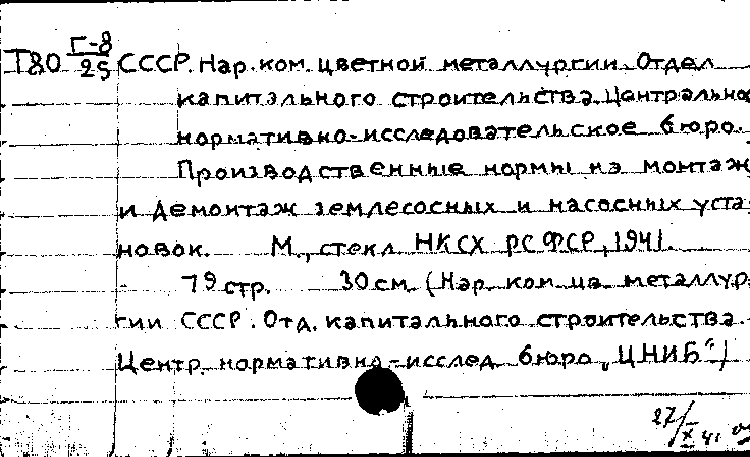 Т80 Г-8/25 СССР. Нар. ком. цветной металлургии. Отдел
капитального строительства. Центрально
нормативно-исследовательское бюро.
Производственные нормы на монтаж
и демонтаж землесосных и насосных уста
новок. М., стекл НКСХ РСФСР, 1941.
79 стр. 30 см. (Нар. ком. цв. металлур
гии СССР. Отд. капитального строительства.
Центр. нормативно-исслед. бюро "ЦНИБ")
27/X 41